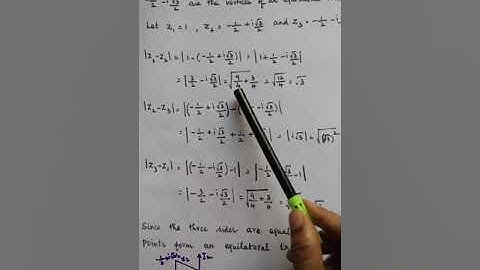 -½ - i√3/2 are the vertices of an equilateral
Let z₁ = 1 , z₂ = -½ + i√3/2 and z₃ = -½ - i
|z₁-z₂| = |1 - (-½ + i√3/2)| = |1 + ½ - i√3/2|
= |3/2 - i√3/2| = √(9/4 + 3/4) = √(12/4) = √3
|z₂-z₃| = |(-½ + i√3/2) - ( - i√3/2)|
= |-½ + i√3/2 + ½ + | = |i√3| = √(√3)²
|z₃-z₁| = |(-½ - i√3/2) - 1| = |-½ - √3/2 - 1|
= |-3/2 - i√3/2| = √(9/4 + 3/4) = √3
Since the three sides are equal
points form an equilateral
Im